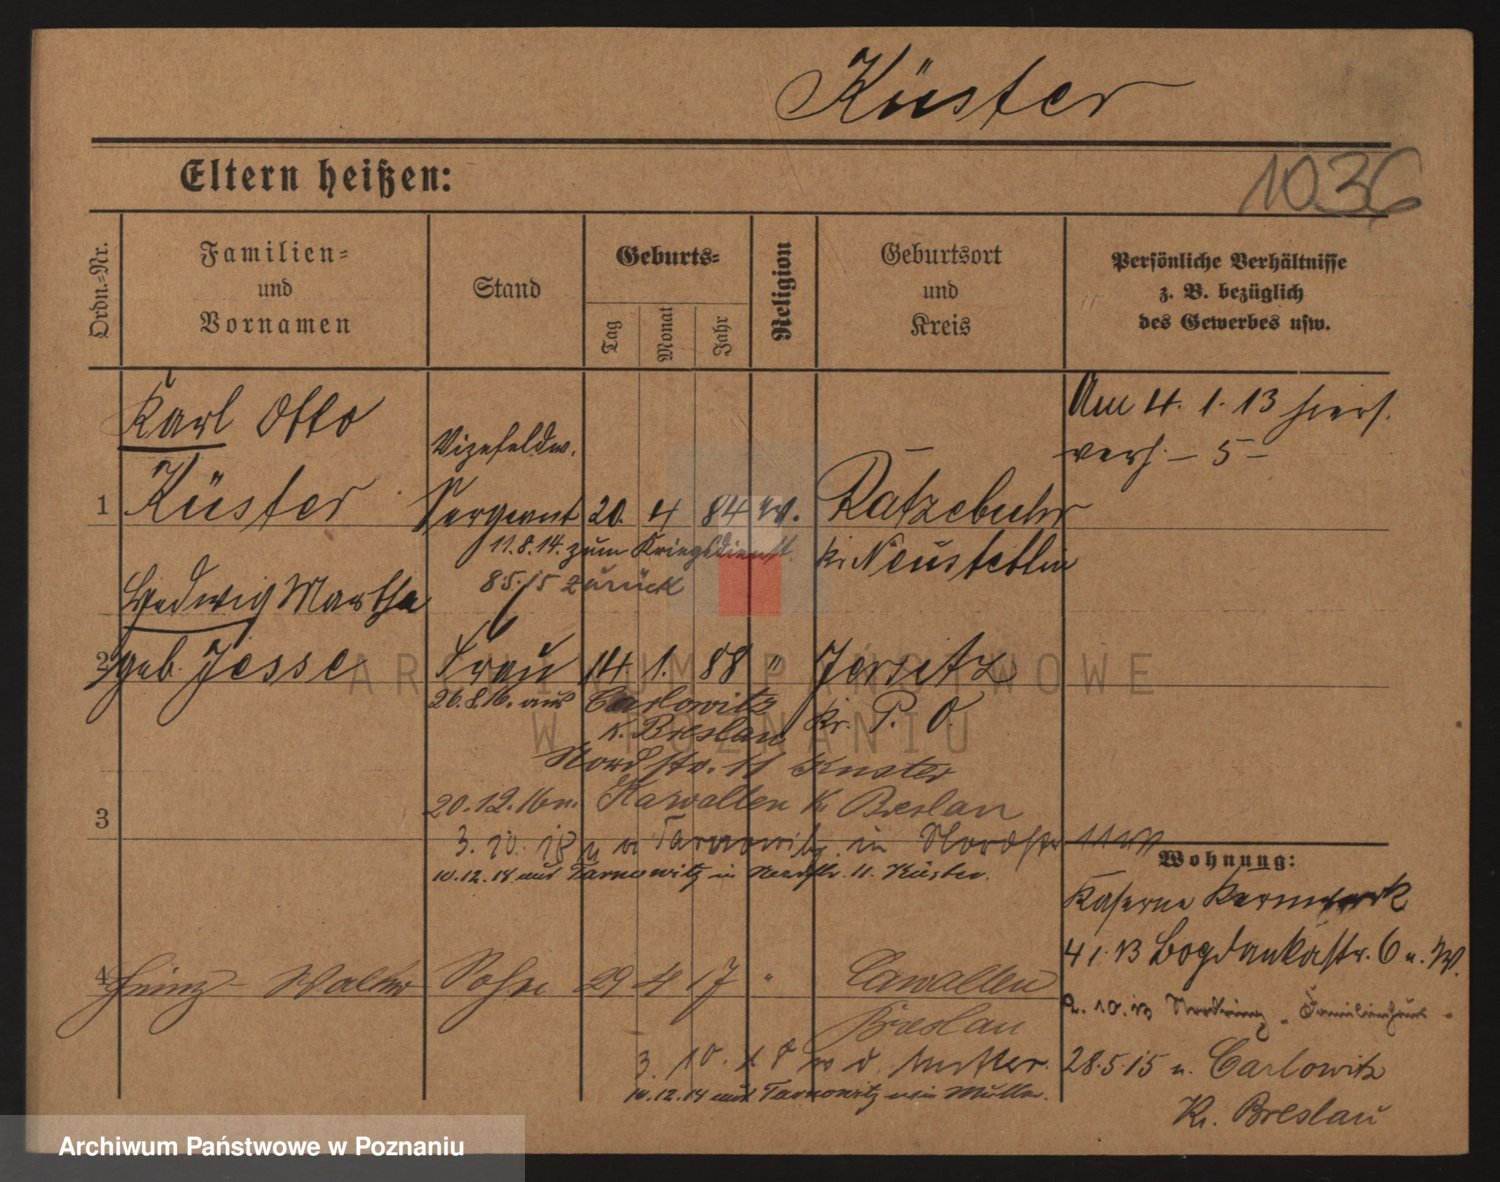 Küster
Eltern heißen:
1036
Ordn.-Nr.
Familien-
und
Vornamen
Stand
Geburts-
Tag
Monat
Jahr
Religion
Geburtsort
und
Kreis
Persönliche Verhältnisse
z. B. bezüglich
des Gewerbes usw.
Karl Otto
Am 4. 1. 13 hiers.
Vizefeldw.
verh. - 5 -
1 Küster Sergeant 20. 4 84 ev. Ratzebuhr
11.8.14. zum Kriegsdienst.
Kr. Neustettin
8.5.15 zurück
Hedwig Martha
2 geb. Jesse Frau 14 1. 88 " Jersitz
26.8.16. aus Carlowitz
Kr. P. O.
K. Breslau
Nordstr. 11 Küster
20.12.16 n. Karvallen Kr Breslau
3
3. 10. 18 Tarnowitz in Nordstr 11
10.12.18 aus Tarnowitz in Nordstr. 11. Küster.
Wohnung:
Kaserne
4 1. 13 Bogdankastr. 6 u. W.
4 Heinz Walter Sohn 29 4 17 " Cawallen
2. 10. 13 Nordring Familienhaus
Breslau
3. 10. 18 v d. Mutter.
28.5.15 n. Carlowitz
10.12.18 aus Tarnowitz wie Mutter.
Kr. Breslau
ARCHIWUM PAŃSTWOWE
W POZNANIU
Archiwum Państwowe w Poznaniu